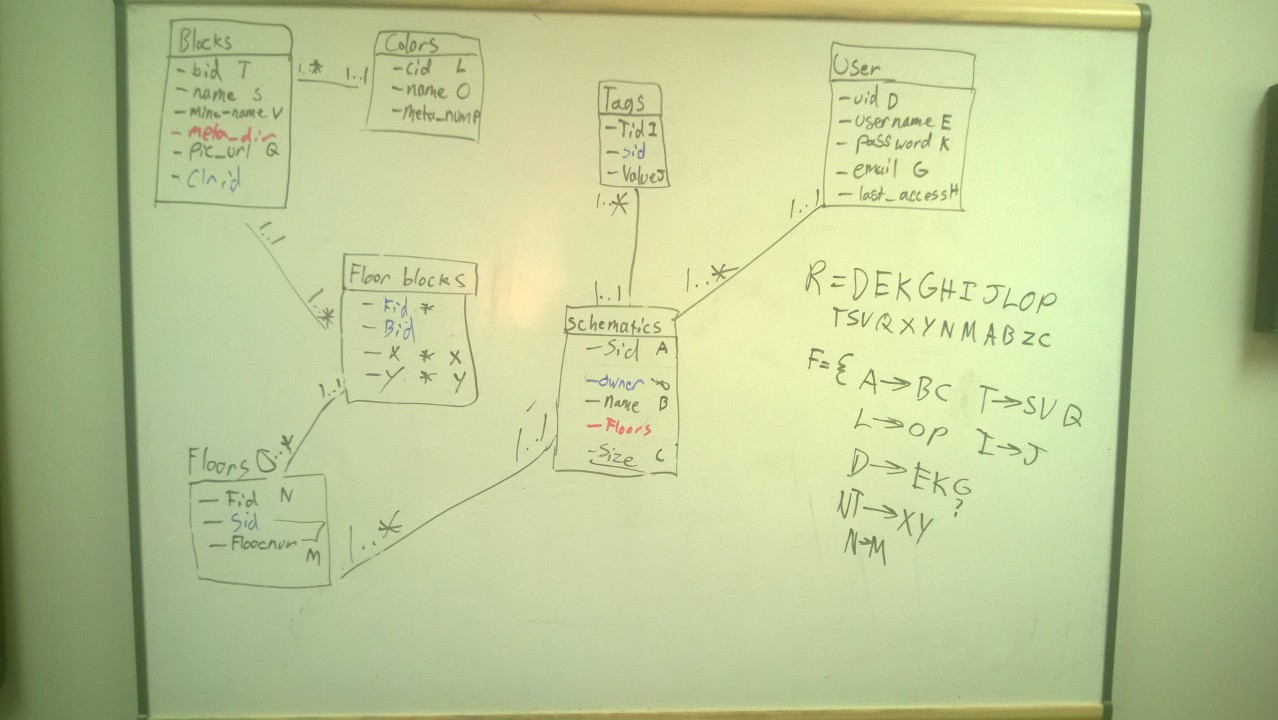 Blocks
- bid T
- name S
- mine-name V
- meta_dir
- pic_url Q
- Clrid
1..*
1..1
Colors
- cid L
- name O
- meta_num P
Tags
- Tid I
- sid
- Value J
1..*
1..1
User
- uid D
- username E
- password K
- email G
- last_access H
1..1
1..*
1..1
1..*
Floor blocks
- Fid *
- Bid
- X * X
- Y * Y
1..1
0..*
Schematics
- Sid A
- owner
- name B
- Floors
- Size C
1..1
1..*
Floors
- Fid N
- Sid
- Floornum
M
R = DEKGHIJLOP
TSVQXYNMABZC
F = { A → BC T → SVQ
L → OP I → J
D → EKG
?
NT → XY
N → M